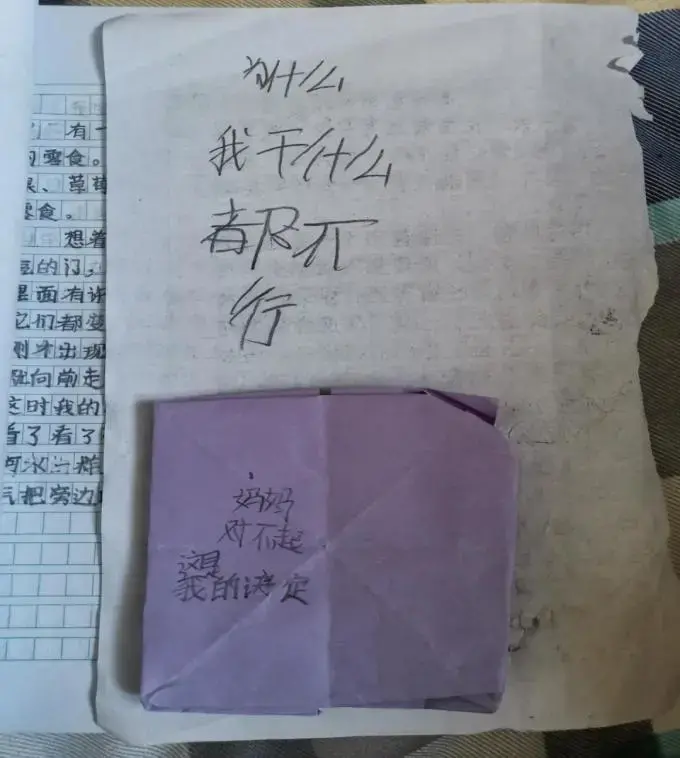 有一
零食。
、草莓
零食。
想着
的门，
里面有许
它们都变
刚才出现
向前走
这时我的
看了看了
河水一
气把旁边
为什么
我干什么
都不
行
妈妈
对不起
这是
我的决定